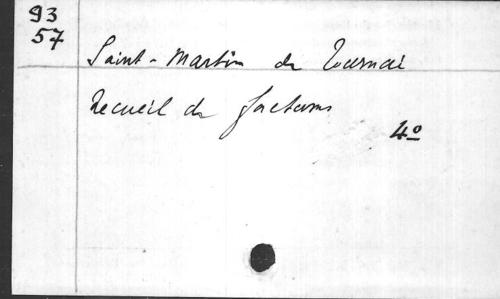 93
57
Saint-Martin de Tournai
Recueil de factums
4º